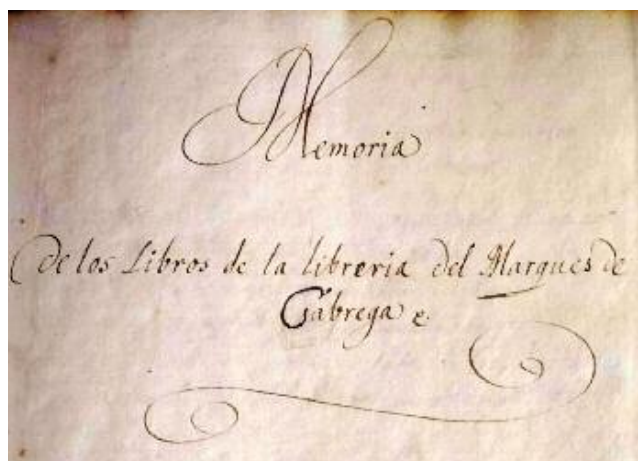 Memoria
de los Libros de la libreria del Marques de
Tabrega e.